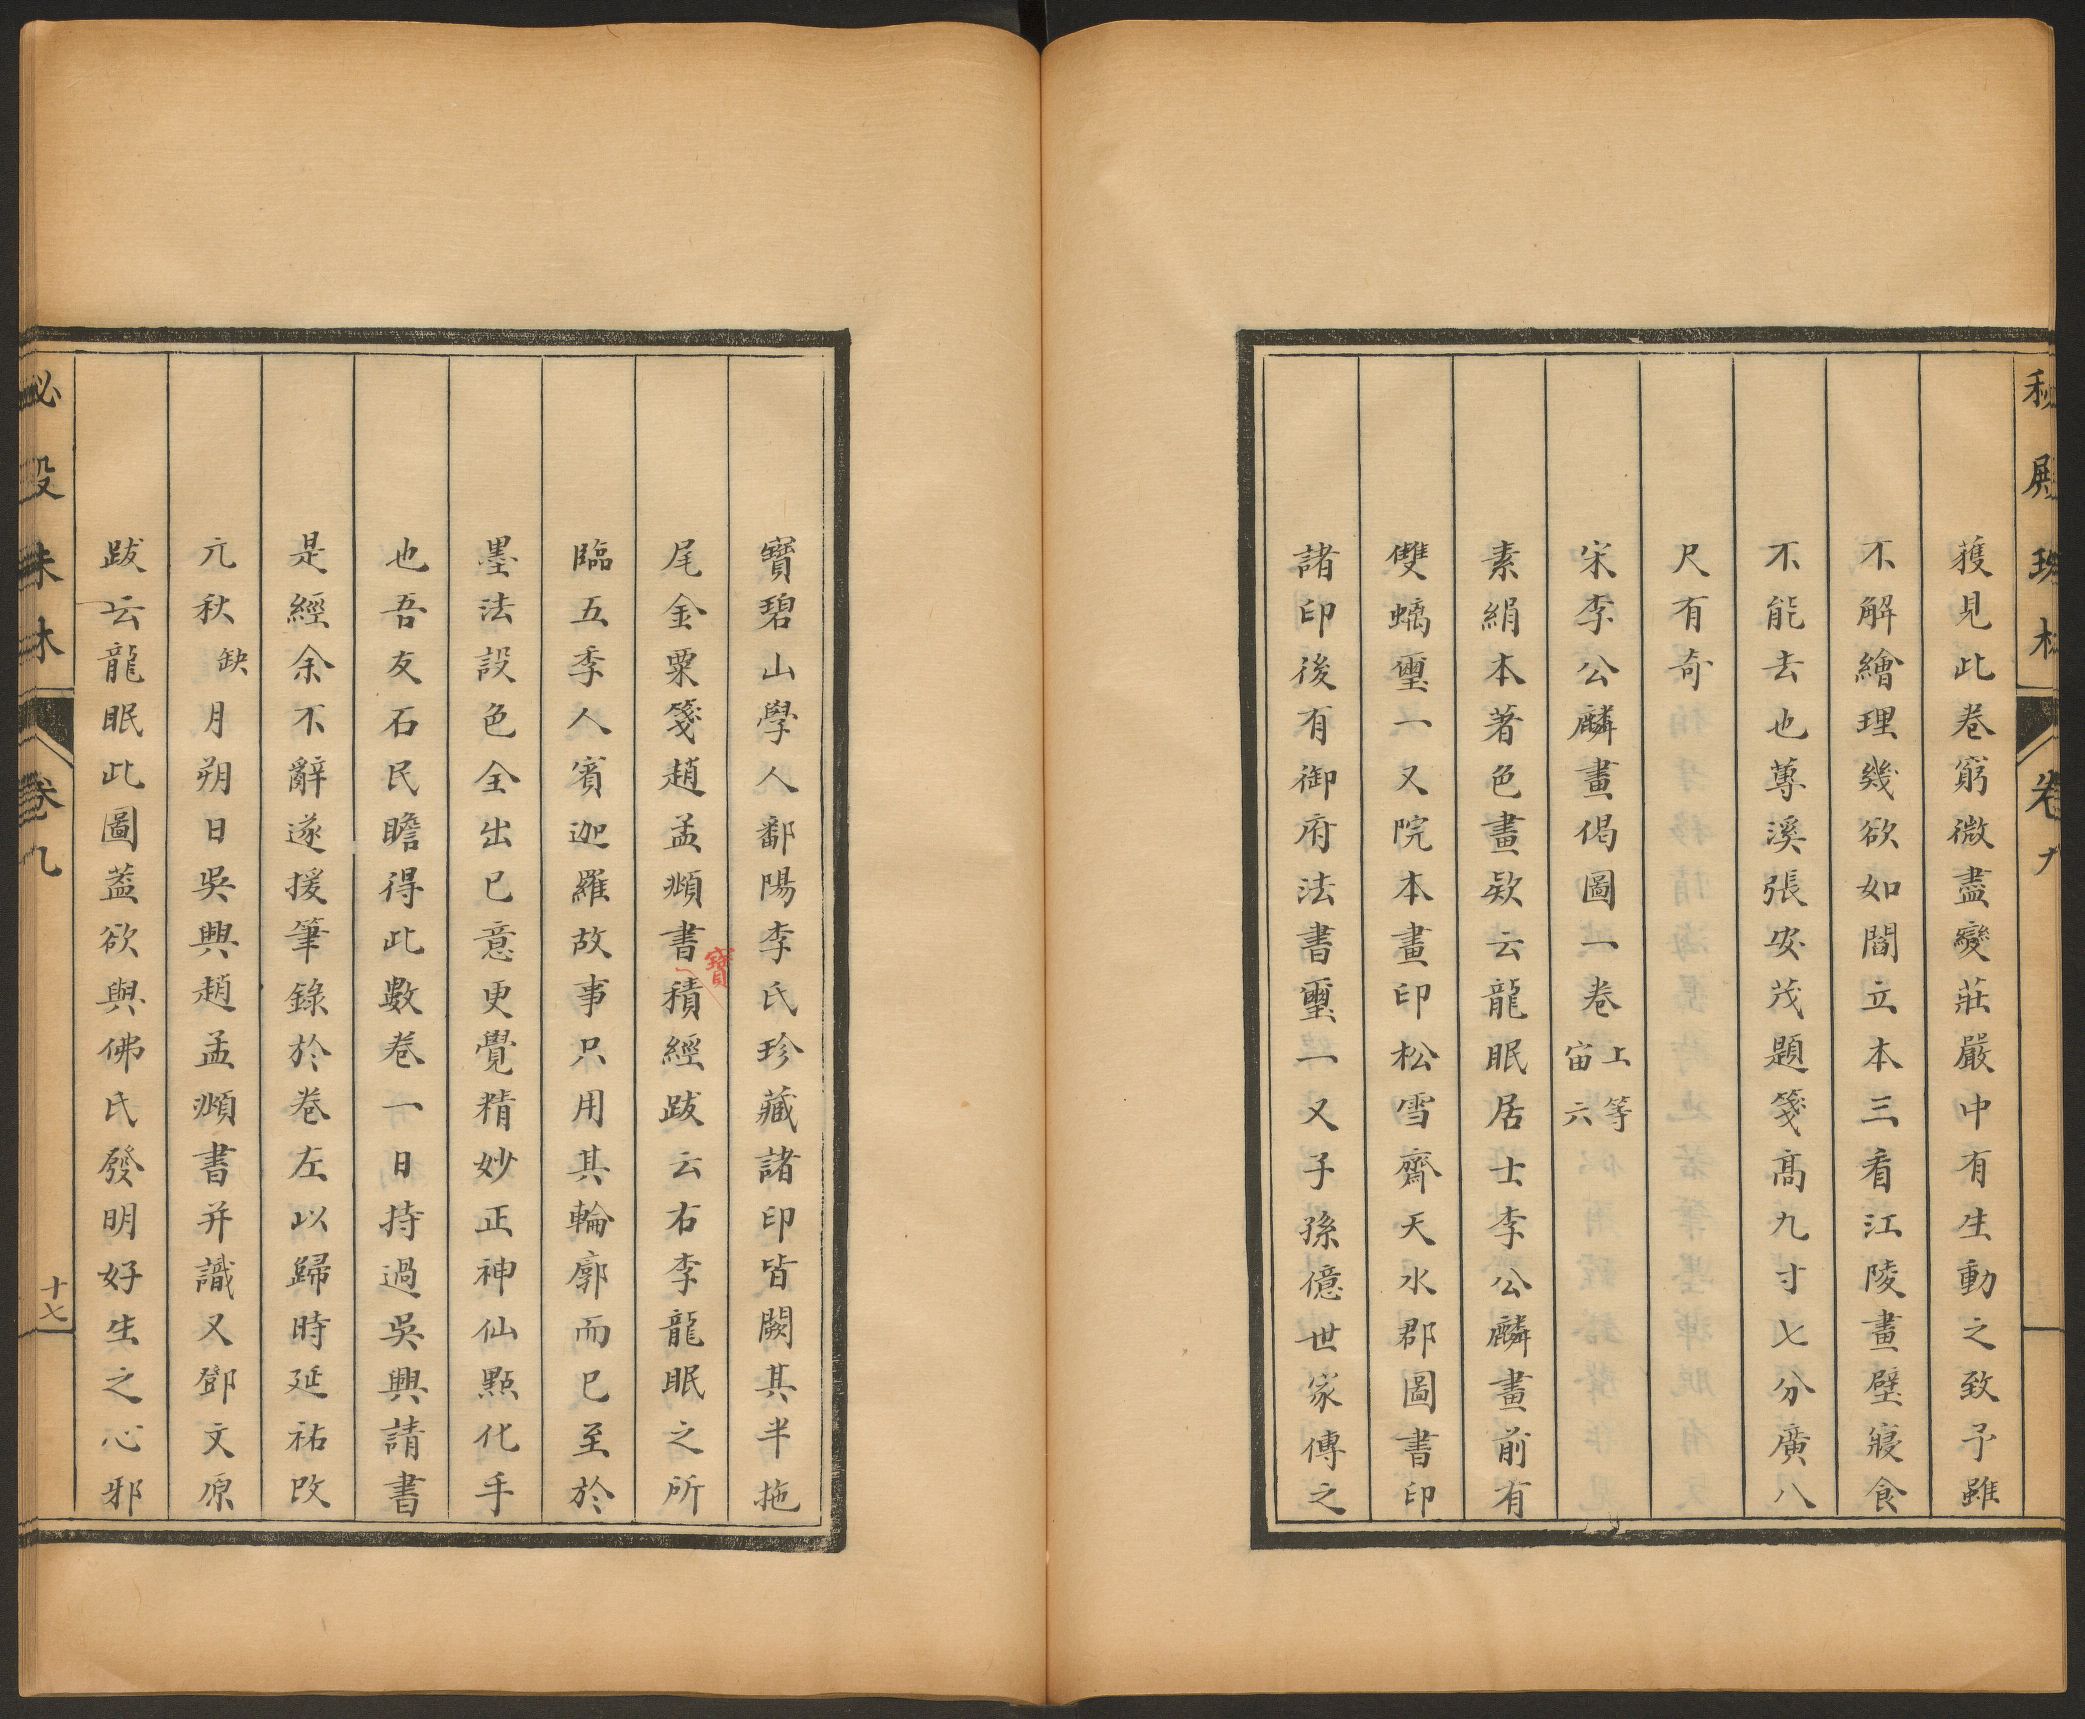 秘殿珠林 卷九
獲見此卷窮微盡變莊嚴中有生動之致予雖
不解繪理幾欲如閻立本三看江陵畫壁寢食
不能去也蓴溪張安茂題箋高九寸七分廣八
尺有奇
宋李公麟畫偈圖一卷 上等 宙六
素絹本著色畫欵云龍眠居士李公麟畫前有
雙螭璽一又院本畫印松雪齋天水郡圖書印
諸印後有御府法書璽一又子孫億世家傳之
寶碧山學人鄱陽李氏珍藏諸印皆闕其半拖
尾金粟箋趙孟頫書寶積經跋云右李龍眠之所
臨五季人賓迦羅故事只用其輪廓而已至於
墨法設色全出己意更覺精妙正神仙點化手
也吾友石民瞻得此數卷一日持過吳興請書
是經余不辭遂援筆錄於卷左以歸時延祐改
亢秋缺月朔日吳興趙孟頫書并識又鄧文原
跋云龍眠此圖葢欲與佛氏發明好生之心邪
秘殿珠林 卷九 十七